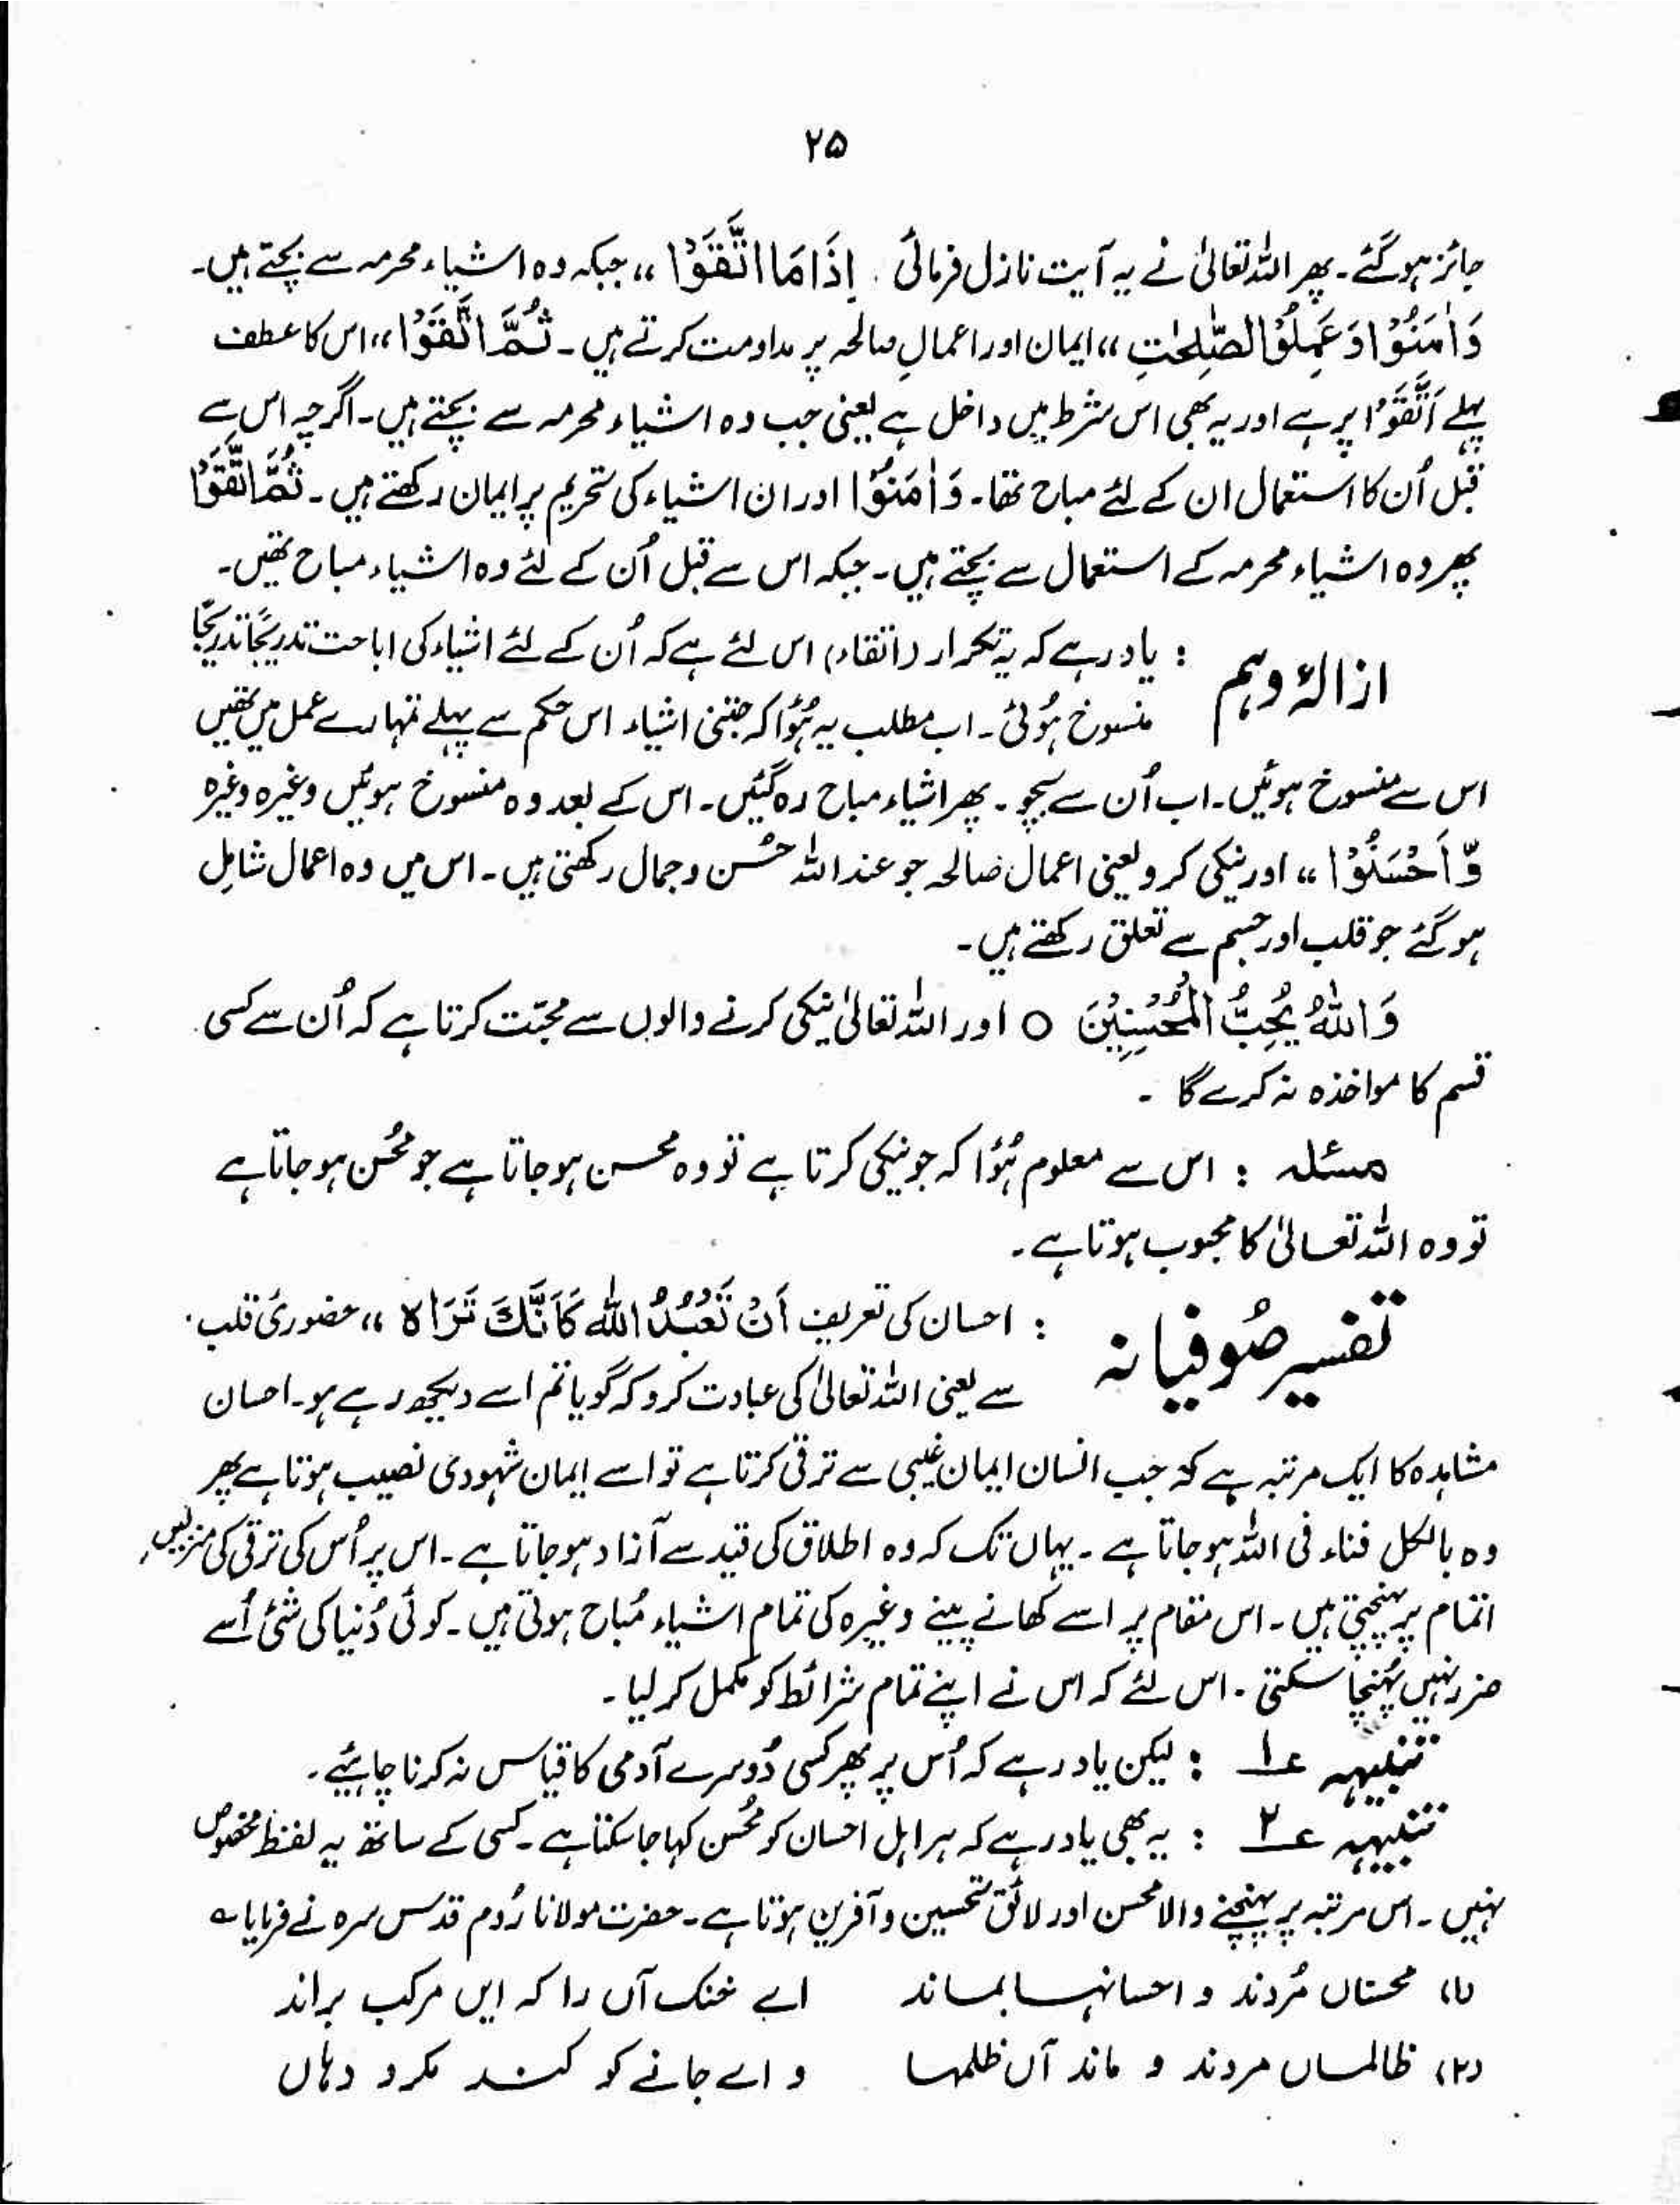 ۲۵
جائز ہوگئے۔ پھر اللہ تعالیٰ نے یہ آیت نازل فرمائی۔ اِذَا مَا اتَّقَوْا ،، جبکہ وہ اشیاء محرمہ سے بچتے ہیں۔
وَاٰمَنُوْا وَعَمِلُوا الصّٰلِحٰتِ ،، ایمان اور اعمالِ صالحہ پر مداومت کرتے ہیں۔ ثُمَّ اتَّقَوْا ،، اس کا عطف
پہلے اَتَّقَوْا پر ہے اور یہ بھی اس شرط میں داخل ہے یعنی جب وہ اشیاء محرمہ سے بچتے ہیں۔ اگرچہ اس سے
قبل اُن کا استعمال ان کے لئے مباح تھا۔ وَاٰمَنُوْا اور ان اشیاء کی تحریم پر ایمان رکھتے ہیں۔ ثُمَّ اتَّقَوْا
پھر وہ اشیاء محرمہ کے استعمال سے بچتے ہیں۔ جبکہ اس سے قبل اُن کے لئے وہ اشیاء مباح تھیں۔
ازالۂ وہم : یاد رہے کہ یہ تکرار (اتقاء) اس لئے ہے کہ اُن کے لئے اشیاء کی اباحت تدریجًا تدریجًا
منسوخ ہُوئی۔ اب مطلب یہ ہُؤا کہ جتنی اشیاء اس حکم سے پہلے تمہارے عمل میں تھیں
اس سے منسوخ ہوئیں۔ اب اُن سے بچو۔ پھر اشیاء مباح رہ گئیں۔ اس کے بعد وہ منسوخ ہوئیں وغیرہ وغیرہ
وَّ اَحْسَنُوْا ،، اور نیکی کرو یعنی اعمال صالحہ جو عند اللہ حُسن و جمال رکھتی ہیں۔ اس میں وہ اعمال شامِل
ہوگئے جو قلب اور جسم سے تعلق رکھتے ہیں۔
وَاللّٰہُ یُحِبُّ الْمُحْسِنِیْنَ ○ اور اللہ تعالیٰ نیکی کرنے والوں سے محبّت کرتا ہے کہ اُن سے کسی
قسم کا مواخذہ نہ کرے گا ۔
مسئلہ : اس سے معلوم ہُؤا کہ جو نیکی کرتا ہے تو وہ محسن ہو جاتا ہے جو مُحسن ہو جاتا ہے
تو وہ اللہ تعالیٰ کا محبوب ہوتا ہے۔
تفسیر صُوفیانہ : احسان کی تعریف اَنْ تَعْبُدُ اللّٰہ کَاَنَّکَ تَرَاہ ،، حضوریٔ قلب
سے یعنی اللہ تعالیٰ کی عبادت کرو کہ گویا تم اسے دیکھ رہے ہو۔ احسان
مشاہدہ کا ایک مرتبہ ہے کہ جب انسان ایمان غیبی سے ترقی کرتا ہے تو اسے ایمان شہودی نصیب ہوتا ہے پھر
وہ بالکل فناء فی اللہ ہو جاتا ہے۔ یہاں تک کہ وہ اطلاق کی قید سے آزاد ہو جاتا ہے۔ اس پر اُس کی ترقی کی منزلیں
اتمام پر پہنچتی ہیں۔ اس مقام پر اسے کھانے پینے وغیرہ کی تمام اشیاء مُباح ہوتی ہیں۔ کوئی دُنیا کی شئی اُسے
ضرر نہیں پہُنچا سکتی۔ اس لئے کہ اس نے اپنے تمام شرائط کو مکمل کر لیا۔
تنبیہہ ؏۱ : لیکن یاد رہے کہ اُس پر پھر کسی دُوسرے آدمی کا قیاس نہ کرنا چاہیئے۔
تنبیہہ ؏۲ : یہ بھی یاد رہے کہ ہر اہل احسان کو مُحسن کہا جا سکتا ہے۔ کسی کے ساتھ یہ لفظ مخصوص
نہیں۔ اس مرتبہ پر پہنچنے والا محسن اور لائق تحسین و آفرین ہوتا ہے۔ حضرت مولانا رُوم قدس سرہ نے فرمایا ؎
(۱) محسناں مُردند و احسانہا بماند اے خنک آں را کہ ایں مرکب براند
(۲) ظالماں مردند و ماند آں ظلمہا و اے جانے کو کند مکر و دہاں